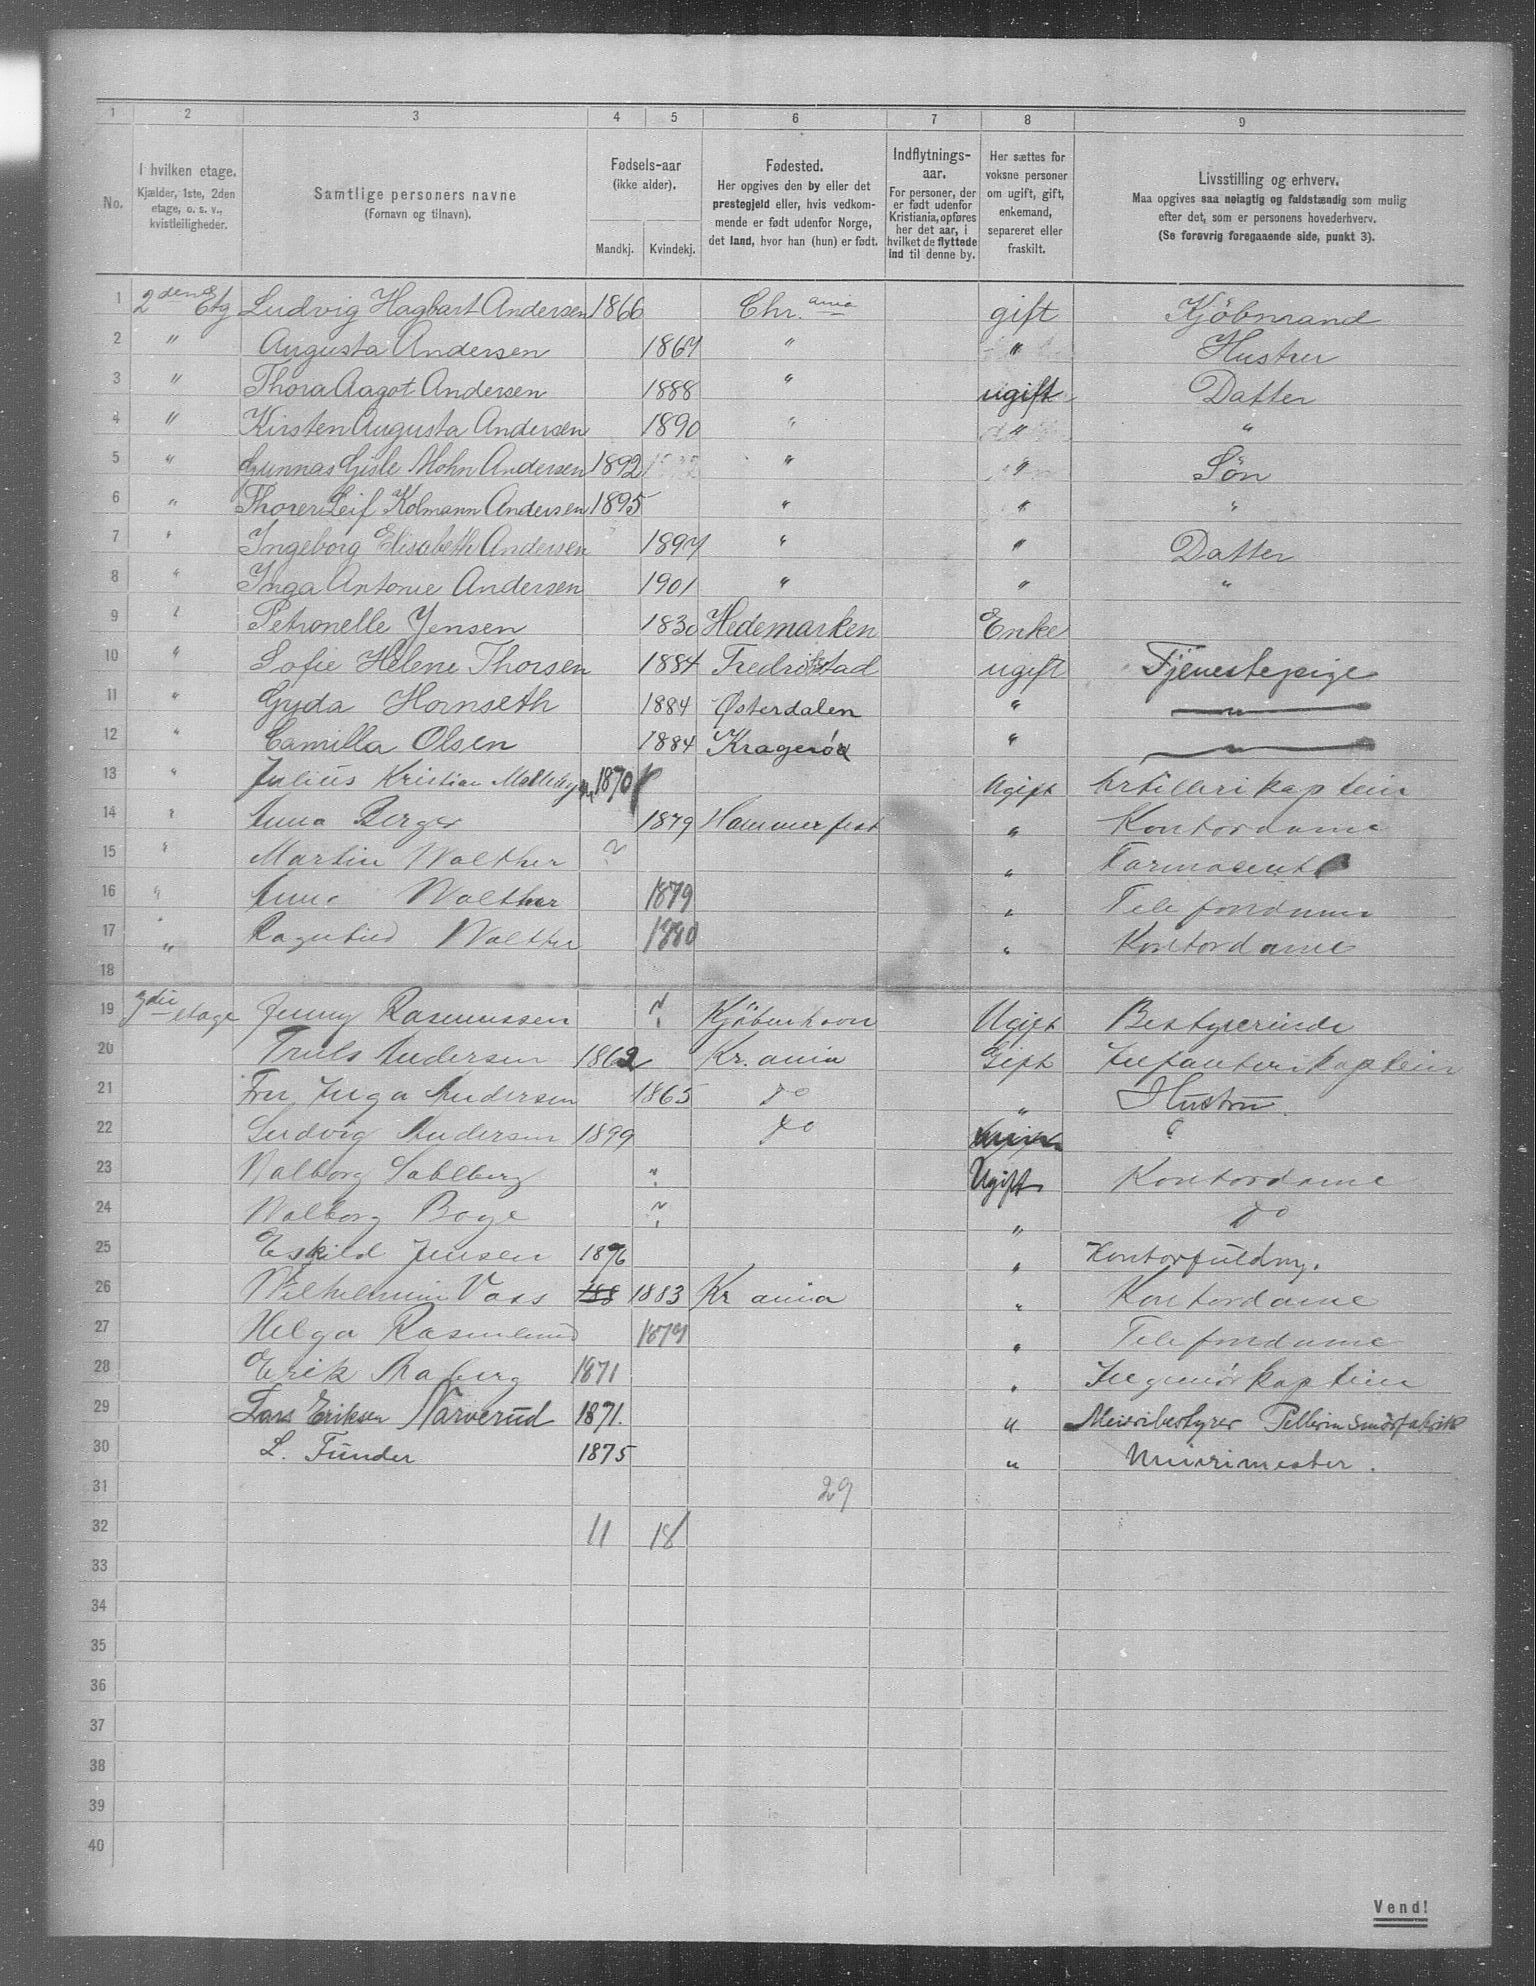 1 2 3 4 5 6 7 8 9
No.
I hvilken etage.
Kjælder, 1ste, 2den
etage, o. s. v.,
kvistleiligheder.
Samtlige personers navne
(Fornavn og tilnavn).
Fødsels-aar
(ikke alder).
Mandkj. Kvindekj.
Fødested.
Her opgives den by eller det
prestegjeld eller, hvis vedkom-
mende er født udenfor Norge,
det land, hvor han (hun) er født.
Indflytnings-
aar.
For personer, der
er født udenfor
Kristiania, opføres
her det aar, i
hvilket de flyttede
ind til denne by.
Her sættes for
voksne personer
om ugift, gift,
enkemand,
separeret eller
fraskilt.
Livsstilling og erhverv.
Maa opgives saa nøiagtig og fuldstændig som mulig
efter det, som er personens hovederhverv.
(Se forøvrig foregaaende side, punkt 3).
1 2den Etg Ludvig Hagbart Andersen 1866 Chr.ania gift Kjöbmand
2 " Augusta Andersen 1867 " " Hustru
3 " Thora Aagot Andersen 1888 " ugift Datter
4 " Kirsten Augusta Andersen 1890 " " "
5 " Gunnas Gisle Mohn Andersen 1892 " " Sön
6 " Thorer Leif Kolmann Andersen 1895 " " "
7 " Ingeborg Elisabeth Andersen 1897 " " Datter
8 " Inga Antonie Andersen 1901 " " "
9 " Petronelle Jensen 1830 Hedemarken Enke
10 " Sofie Helene Thorsen 1884 Fredrikstad ugift Tjenestepige
11 " Gyda Hornseth 1884 Østerdalen " "
12 " Camilla Olsen 1884 Kragerø "
13 " Julius Kristian 1870 Ugift Artillerikaptein
14 " Anna Berger 1879 Hammerfest " Kontordame
15 " Martin Walther ? " Farmaceut
16 " Anna Walther 1879 " Telefondame
17 " Ragnhild Walther 1880 " Kontordame
18 "
19 3die etage Jenny Rasmussen ? Kjöbenhavn Ugift Bestyrerinde
20 Truls Andersen 1862 Kr.ania Gift Infanterikaptein
21 Fru Inga Andersen 1865 do " Hustru.
22 Ludvig Andersen 1899 do
23 Valborg Sahlberg ? Ugift Kontordame
24 Valborg Boge ? " do
25 Eskild Jensen 1876 " Kontorfuldm.
26 Vilhelmine Vass 188 1883 Kr ania " Kontordame
27 Helga 1879 " Telefondame
28 Erik Raberg 1871 " Ingeniörkaptein
29 Lars Eriksen Narverud 1871. " Meieribestyrer Pellerin Smörfabrik
30 L. Funder 1875 " Meierimester.
31 29
32 11 18
33
34
35
36
37
38
39
40
Vend!